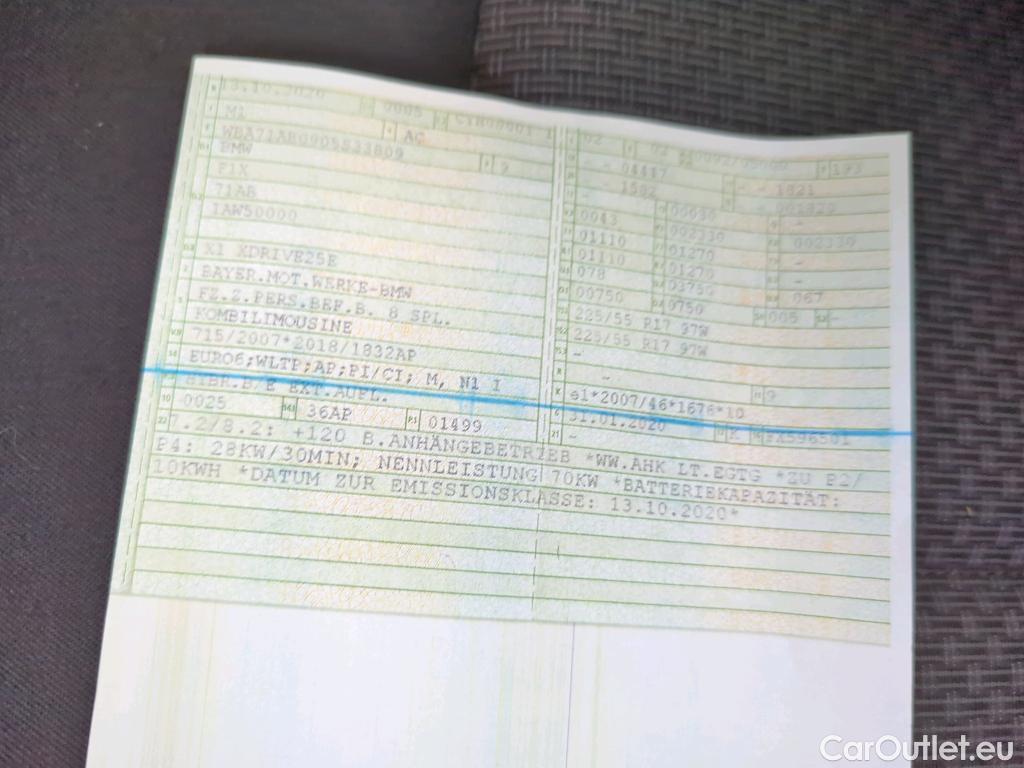 13.10.2020 0005
M1 AC
WBA71AB0905S33809 9
BMW
F1X
71AB
IAW50000
X1 XDRIVE25E
BAYER.MOT.WERKE-BMW
FZ.Z.PERS.BEF.B. 8 SPL.
KOMBILIMOUSINE
715/2007*2018/1832AP
EURO6;WLTP;AP;PI/CI; M, N1 I
EXT.AUFL.
0025 36AP 01499
02 02 193
- - 04447
- 1582 - - 1821
00080 - 001820
0043 002330 -
01110 01270 002330
01110 01270 -
078 03750 - 067
00750 0750 005 -
225/55 R17 97W
225/55 R17 97W
-
-
e1*2007/46*1676*10 9
31.01.2020 K
-
7.2/8.2: +120 B.ANHÄNGEBETRIEB *WW.AHK LT.EGTG *ZU P2/
P4: 28KW/30MIN; NENNLEISTUNG 70KW *BATTERIEKAPAZITÄT:
10KWH *DATUM ZUR EMISSIONSKLASSE: 13.10.2020*
CarOutlet.eu